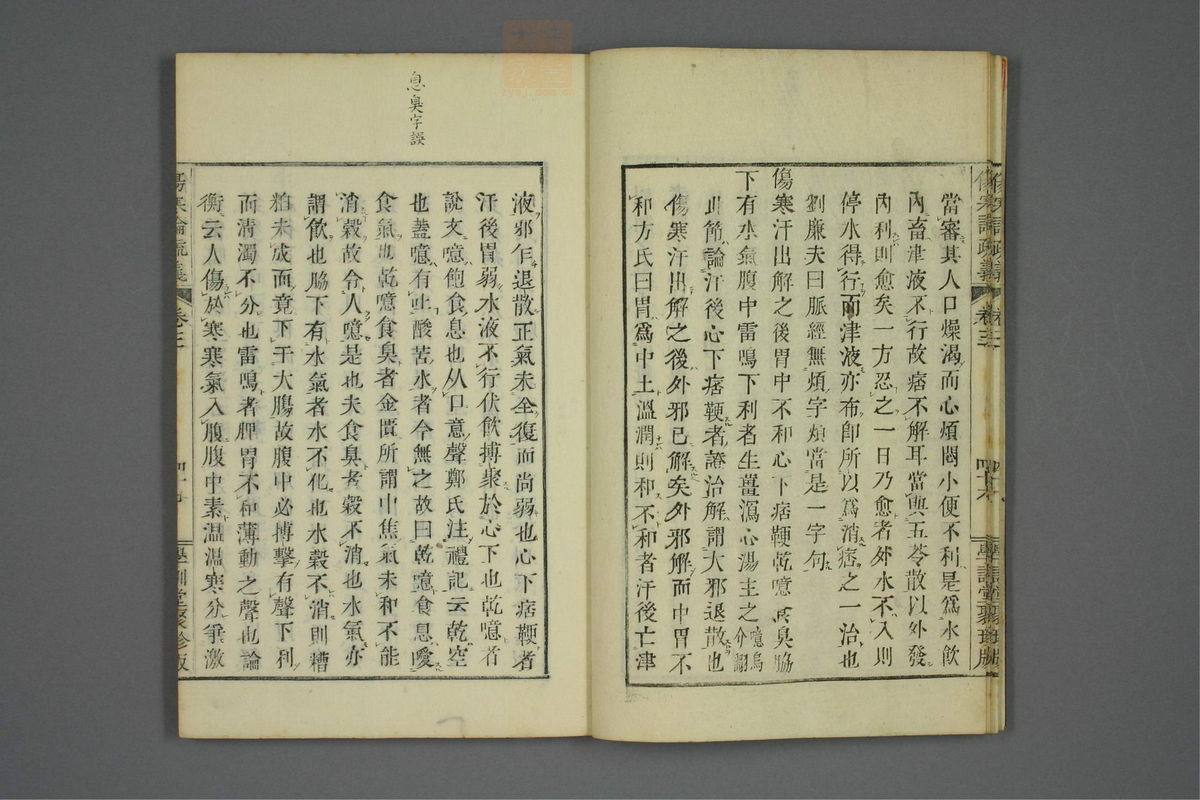 當審其人口燥渴而心煩悶小便不利是爲水飮
內畜津液不行故痞不解耳當與五苓散以外發
內利則愈矣一方忍之一日乃愈者外水不入則
停水得行而津液亦布卽所以爲消痞之一治也
劉廉夫曰脈經無煩字煩當是一字句
傷寒汗出解之後胃中不和心下痞鞕乾噫食臭脇
下有水氣腹中雷鳴下利者生薑瀉心湯主之噫烏介翻
此節論汗後心下痞鞕者證治解謂大邪退散也
傷寒汗出解之後外邪已解矣外邪解而中胃不
和方氏曰胃爲中土溫潤則和不和者汗後亡津
傷寒論疏義
卷三
學壽堂
液邪乍退散正氣未全復而尚弱也心下痞鞕者
汗後胃弱水液不行伏飮搏聚於心下也乾噫者
說文噫飽食息也从口意聲鄭氏注禮記云乾空
也蓋噫有吐酸苦水者今無之故曰乾噫食息噯
食氣也乾噫食臭者金匱所謂中焦氣未和不能
消穀故令人噫是也夫食臭者穀不消也水氣亦
謂飮也脇下有水氣者水不化也水穀不消則糟
粕未成而竟下于大腸故腹中必搏擊有聲下利
而淸濁不分也雷鳴者脾胃不和薄動之聲也論
衡云人傷於寒寒氣入腹腹中素温温寒分爭激
息臭字誤
傷寒論疏義
卷三
學訓堂聚珍版